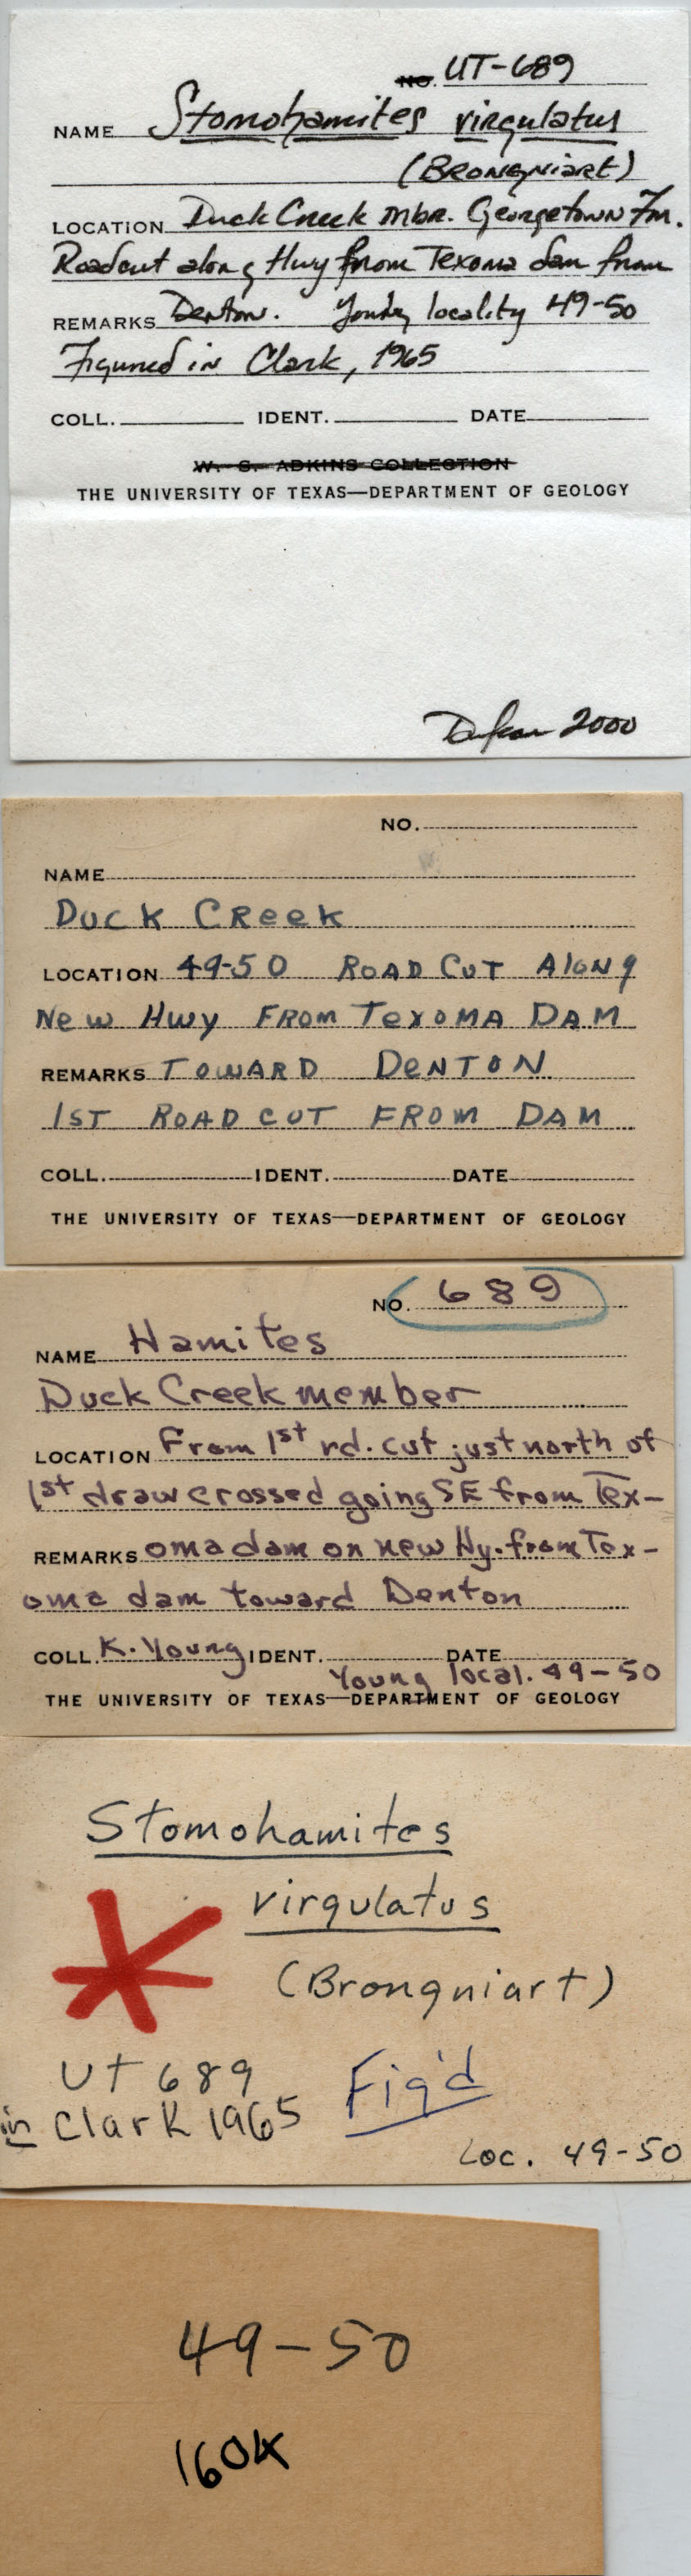 NO. UT-689
NAME Stomohamites virgulatus
(Brongniart)
LOCATION Duck Creek mbr. Georgetown Fm.
Roadcut along Hwy from Texoma dam from
REMARKS Denton. Young locality 49-50
Figured in Clark, 1965
COLL. IDENT. DATE
W. S. ADKINS COLLECTION
THE UNIVERSITY OF TEXAS—DEPARTMENT OF GEOLOGY
2000
NO.
NAME
DUCK CReeK
LOCATION 49-50 ROAD CUT AlONg
New Hwy FROM TexOMA DAM
REMARKS TOWARD DeNTON
1ST ROAD CUT FROM DAM
COLL. IDENT. DATE
THE UNIVERSITY OF TEXAS—DEPARTMENT OF GEOLOGY
NO. 689
NAME Hamites
Duck Creek member
LOCATION From 1st rd. cut just north of
1st draw crossed going SE from Tex-
REMARKS oma dam on new Hy. from Tex-
oma dam toward Denton
COLL. K. Young IDENT. DATE
Young local. 49-50
THE UNIVERSITY OF TEXAS—DEPARTMENT OF GEOLOGY
Stomohamites
virgulatus
(Brongniart)
UT 689 Fig'd
in Clark 1965
Loc. 49-50
49-50
160K